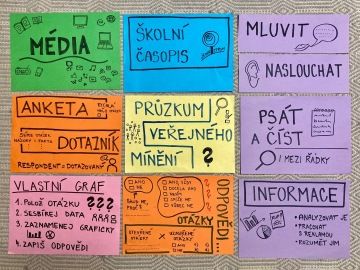 MÉDIA
ŠKOLNÍ
ČASOPIS
MLUVIT
NASLOUCHAT
ANKETA
DOTAZNÍK
RESPONDENT = DOTAZOVANÝ
PRŮZKUM
VEŘEJNÉHO
MÍNĚNÍ ?
PSÁT
A ČÍST
I MEZI ŘÁDKY
VLASTNÍ GRAF
1. POLOŽ OTÁZKU ???
2. SESBÍREJ DATA
3. ZAZNAMENEJ GRAFICKY
4. ZAPIŠ ODPOVĚDI
ODPOVĚDI...
OTÁZKY
OTEVŘENÉ
OTÁZKY
UZAVŘENÉ
OTÁZKY
ANO
NE
INFORMACE
• ANALYZOVAT JE
• PRACOVAT
S REKLAMOU
• ROZUMĚT JIM